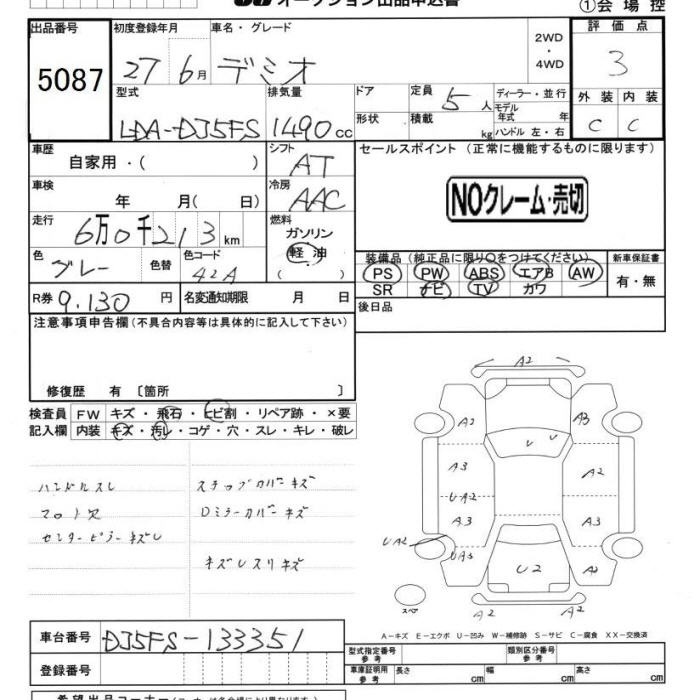 オークション出品申込書
①会場控
出品番号
5087
初度登録年月
27 6月
車名・グレード
デミオ
2WD
・
4WD
評価点
3
型式
LDA-DJ5FS
排気量
1490cc
ドア
形状
定員
5人
積載
kg
ディーラー・並行
モデル年式 年
ハンドル 左・右
外装 内装
C C
車歴
自家用・( )
シフト
AT
セールスポイント(正常に機能するものに限ります)
NOクレーム・売切
車検
年 月( 日)
冷房
AAC
走行
6万0千213km
燃料
ガソリン
軽油
( )
色
グレー
色替
色コード
42A
装備品(純正品に限り○をつけてください)
PS PW ABS エアB AW
SR ナビ TV カワ
新車保証書
有・無
R券 9,130円
名変通知期限 月 日
後日品
注意事項申告欄(不具合内容等は具体的に記入して下さい)
修復歴 有〔箇所 〕
検査員記入欄
FW キズ・飛石・ヒビ割・リペア跡・×要
内装 キズ・汚レ・コゲ・穴・スレ・キレ・破レ
ハンドルスレ
フロア穴
センターピラーキズレ
ステップカバーキズ
Dミラーカバーキズ
キズレスリキズ
A2
A2 A3
U U
A3 A2
UA2
A3 A3
UA2
UA3 U2 A2
スペア
A2 A2
A-キズ E-エクボ U-凹み W-補修跡 S-サビ C-腐食 XX-交換済
車台番号
DJ5FS-133351
登録番号
型式指定番号
参考
類別区分番号
参考
車庫証明用
参考
長さ cm 幅 cm 高さ cm
希望出品コーナー